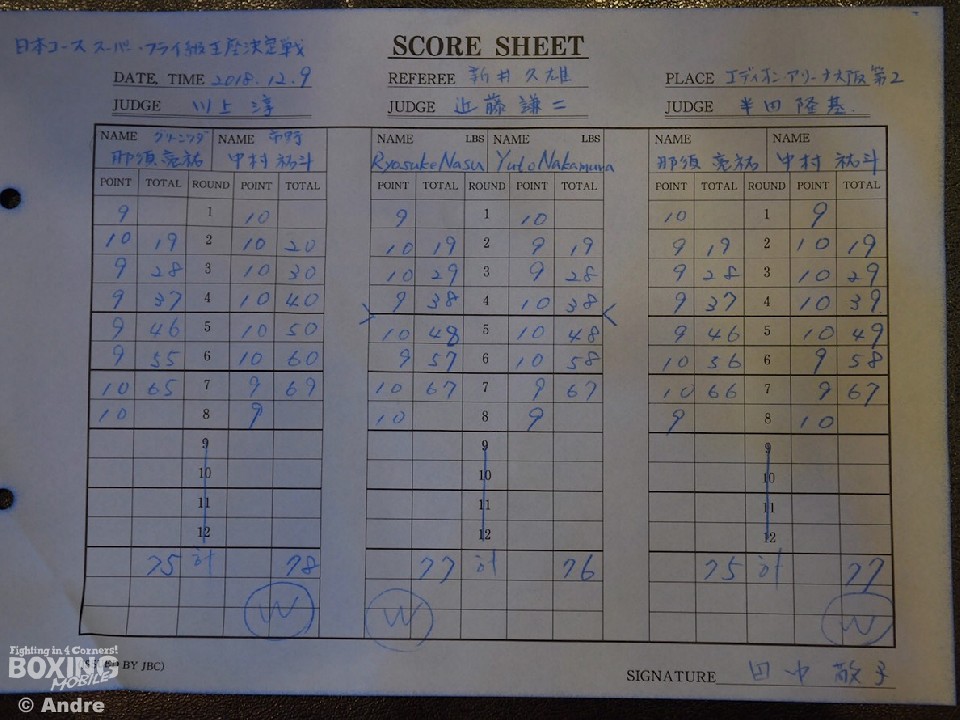 日本ユース スーパー・フライ級王座決定戦
SCORE SHEET
DATE. TIME 2018.12.9 REFEREE 新井久雄 PLACE エディオンアリーナ大阪第2
JUDGE 川上淳 JUDGE 近藤謙二 JUDGE 半田隆基
NAME クリーンツダ NAME 市野 NAME LBS NAME LBS NAME NAME
那須亮祐 中村祐斗 Ryosuke Nasu Yuto Nakamura 那須亮祐 中村祐斗
POINT TOTAL ROUND POINT TOTAL POINT TOTAL ROUND POINT TOTAL POINT TOTAL ROUND POINT TOTAL
9 1 10 9 1 10 10 1 9
10 19 2 10 20 10 19 2 9 19 9 19 2 10 19
9 28 3 10 30 10 29 3 9 28 9 28 3 10 29
9 37 4 10 40 9 38 4 10 38 9 37 4 10 39
9 46 5 10 50 10 48 5 10 48 9 46 5 10 49
9 55 6 10 60 9 57 6 10 58 10 56 6 9 58
10 65 7 9 69 10 67 7 9 67 10 66 7 9 67
10 8 9 10 8 9 9 8 10
9 9 9
10 10 10
11 11 11
12 12 12
75 計 78 77 計 76 75 計 77
W W W
Fighting in 4 Corners!
BOXING
MOBILE
BY JBC)
SIGNATURE 田中
© Andre